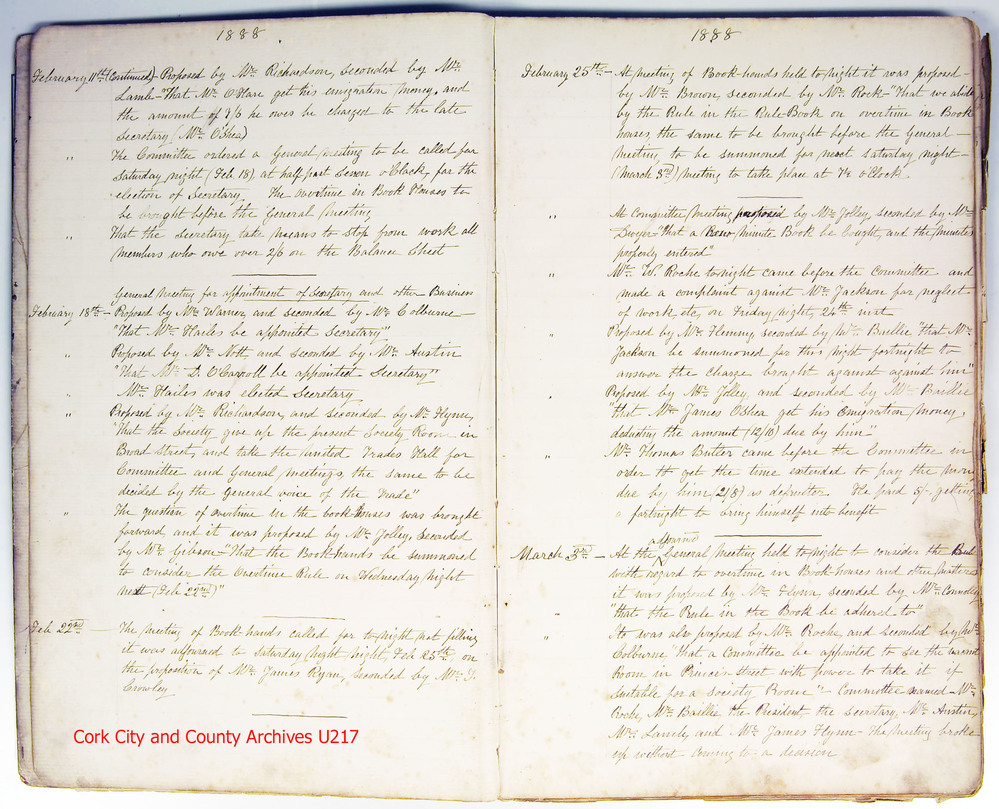 1888
February 11th (Continued) - Proposed by Mr. Richardson, seconded by Mr.
Lamb - "That Mr. O'Hare get his emigration money, and
the amount of 7/6 he owes be charged to the late
Secretary (Mr. O'Shea)
" The Committee ordered a General Meeting to be called for
Saturday night (Feb. 18), at half past seven o'Clock, for the
election of Secretary. The overtime in Book Houses to
be brought before the General Meeting
" That the Secretary take means to stop from work all
members who owe over 2/6 on the Balance Sheet
General Meeting for appointment of Secretary and other Business
February 18th - Proposed by Mr. Warner, and seconded by Mr. Colburne -
"That Mr. Hailes be appointed Secretary"
" Proposed by Mr. Nott, and seconded by Mr. Austin
"That Mr. D. O'Carroll be appointed Secretary"
" Mr. Hailes was elected Secretary
" Proposed by Mr. Richardson, and seconded by Mr. Flynn,
"That the Society give up the present Society Room in
Broad Street, and take the United Trades Hall for
Committee and General Meetings, the same to be
decided by the general voice of the Trade"
" The question of overtime in the book houses was brought
forward, and it was proposed by Mr. Jolley, seconded
by Mr. Gibson - "That the Book-hands be summoned
to consider the Overtime Rule on Wednesday night
next (Feb 22nd)"
Feb 22nd - The meeting of Book-hands called for to-night not filling
it was adjourned to Saturday night night, Feb 25th, on
the proposition of Mr. James Ryan, seconded by Mr. T.
Crowley
Cork City and County Archives U217
1888
February 25th - At meeting of Book-hands held to-night it was proposed -
by Mr. Brown, seconded by Mr. Rock - "That we abide
by the Rule in the Rule Book on overtime in Book
houses, the same to be brought before the General -
Meeting to be summoned for next saturday night -
(March 3rd) meeting to take place at 7½ o'Clock.
" At Committee Meeting proposed by Mr. Jolley, seconded by Mr.
Dwyer - "That a Minute Book be bought, and the minutes
properly entered"
" Mr. W. Roche to-night came before the Committee and
made a complaint against Mr. Jackson for neglect
of work, etc, on Friday night, 24th inst
" Proposed by Mr. Fleming, seconded by Mr. Baillie, "That Mr.
Jackson be summoned for this night fortnight to
answer the charge brought against against him"
" Proposed by Mr. Jolley, and seconded by Mr. Baillie
"that Mr. James O'Shea get his Emigration money,
deducting the amount (12/10) due by him"
" Mr. Thomas Butler came before the Committee in
order to get the time extended to pay the money
due by him (21/8) as defaulter. He paid 5/-, getting
a fortnight to bring himself into benefit
adjourned
March 3rd - At the General Meeting held to-night to consider the Rule
with regard to overtime in Book-houses and other matters
it was proposed by Mr. Flynn, seconded by Mr. Connolly
"that the Rule in the Book be adhered to"
" It was also proposed by Mr. Roche, and seconded by Mr.
Colburne "That a Committee be appointed to see the vacant
Room in Princes Street with power to take it if
suitable for a Society Room" - Committee named - Mr.
Roche, Mr. Baillie, the President, the Secretary, Mr. Austin,
Mr. Lamb, and Mr. James Flynn - The meeting broke
up without coming to a decision